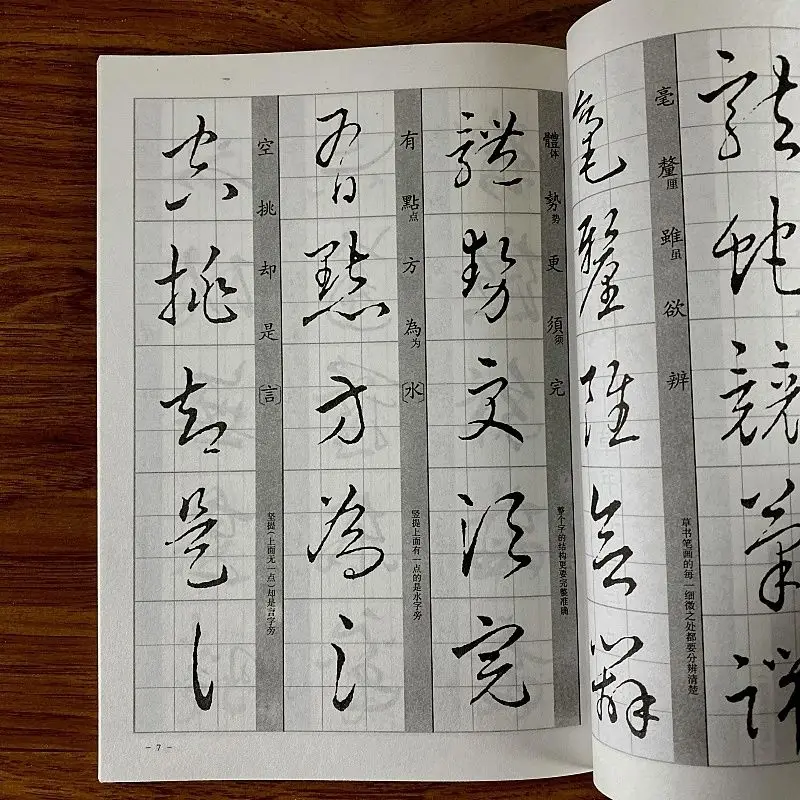 毫釐厘雖虽欲辨
草书笔画的每一细微之处都要分辨清楚
毫釐雖欲辨
體体勢势更須须完
整个字的结构更要完整准确
體勢更須完
有點点方為为〔水〕
竖提上面有一点的是水字旁
有點方為氵
空挑却是〔言〕
竖提(上面无一点)却是言字旁
空挑却是讠
- 7 -